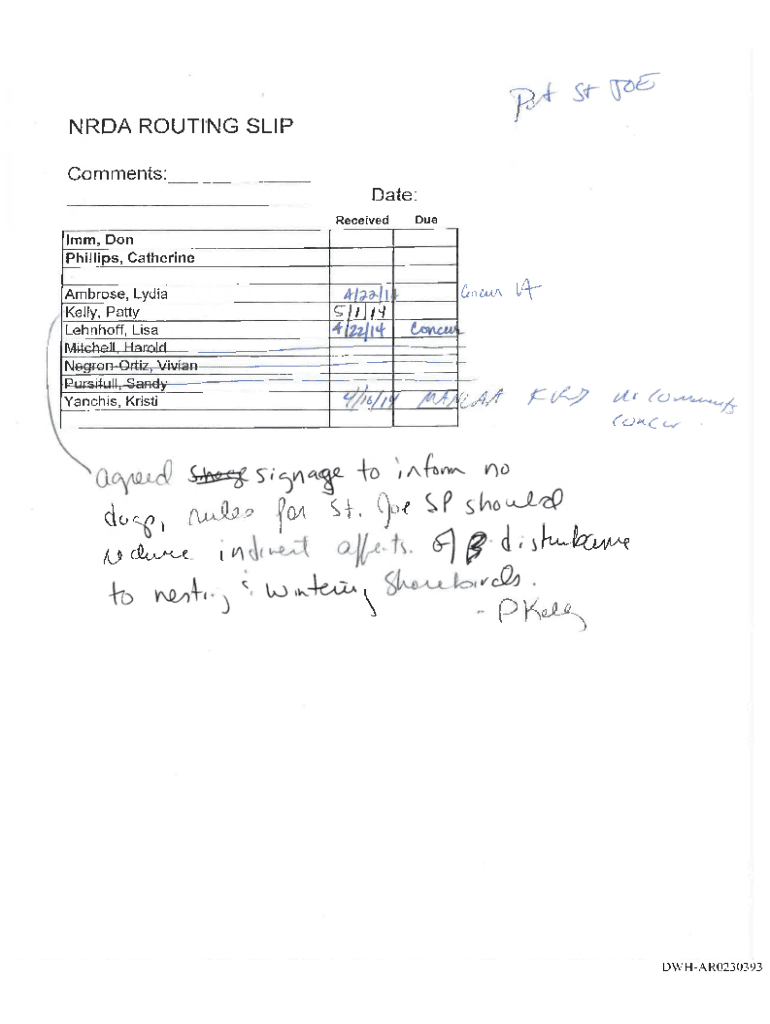 Port St JOE
NRDA ROUTING SLIP
Comments:
Date:
Received Due
Imm, Don
Phillips, Catherine
Ambrose, Lydia 4/22/14 Concur LA
Kelly, Patty 5/1/14
Lehnhoff, Lisa 4/22/14 Concur
Mitchell, Harold
Negron-Ortiz, Vivian
Pursifull, Sandy
Yanchis, Kristi 4/16/14 MANLAA no comments
concur
agreed signage to inform no
dogs, rules for St. Joe SP should
reduce indirect affects. of disturbance
to nesting & wintering shorebirds.
- PKelly
DWH-AR0230393